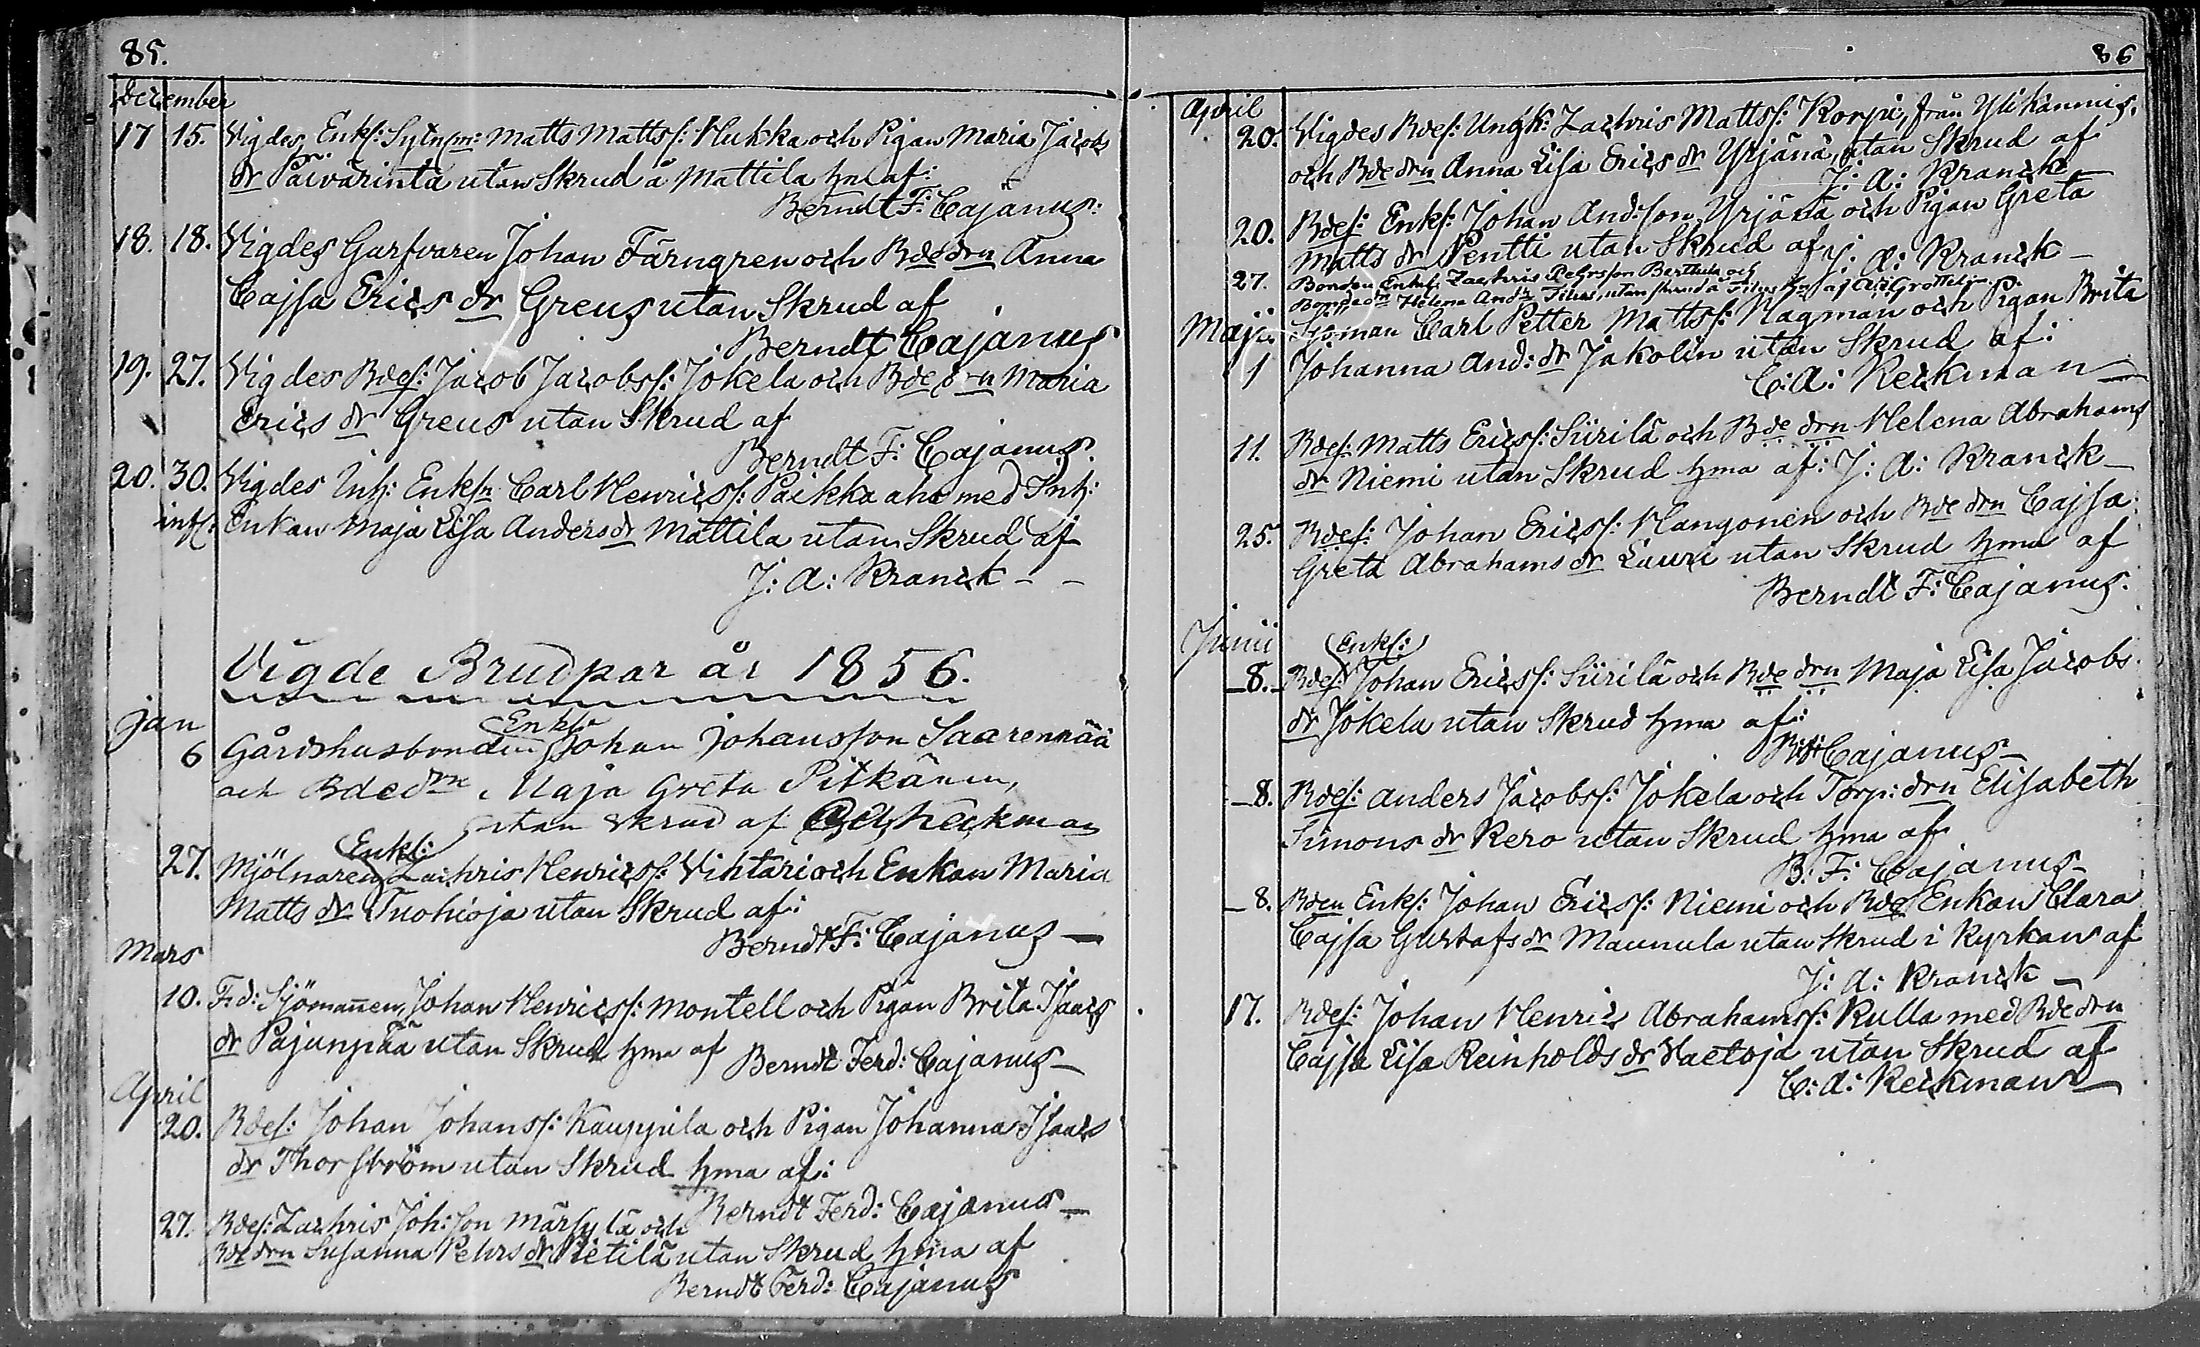 85.
December
17 15. Vigdes Enkf: Sytnm: Matts Mattsf: Hukka och Pigan Maria Jacobs
dr Päivärinta utan Skrud å Mattila hm af:
Berndt F: Cajanus:
18. 18. Vigdes Garfvaren Johan Färngren och Bdedrn Anna
Cajsa Erics dr Greus utan Skrud af
Berndt Cajanus
19. 27. Vigdes Bdes: Jacob Jacobsf: Jokela och Bdedrn Maria
Erics dr Greus utan Skrud af
Berndt F: Cajanus.
20. 30. Vigdes Inh: Enkfn Carl Henricsf: Paikka aho med Inh:
Enkan Maja Lisa Anders dr Mattila utan Skrud af
J: A: Kranck - -
Vigde Brudpar år 1856.
Jan
Enkf:
6 Gårdshusbonden Johan Johansson Saarenpää
och Bdedrn Maja Greta Pitkänen,
utan skrud af C A Heckman
Enkf:
27. Mjölnaren Zachris Henricsf: Vihtari och Enkan Maria
Matts dr Tuohioja utan Skrud af:
Berndt F: Cajanus —
Mars
10. F.d: Sjömannen Johan Henricsf: Montell och Pigan Brita Isaacs
dr Pajunpää utan Skrud hma af Berndt Ferd: Cajanus —
April
20. Bdes: Johan Johansf: Kauppila och Pigan Johanna Isaacs
dr Thorström utan Skrud hma af:
Berndt Ferd: Cajanus —
27. Bdes: Zachris Joh:son Märsylä och
Bdedrn Susanna Pehrs dr Pietilä utan Skrud hma af
Berndt Ferd: Cajanus
86
April
20. Vigdes Bdes: Ungk: Zachris Mattsf: Korpi, från Ylikannus,
och Bdedrn Anna Lisa Erics dr Yrjänä, utan Skrud af
J: A: Kranck
20. Bdes: Enkf: Johan And:son Yrjänä och Pigan Greta
Matts dr Pentti utan Skrud af J: A: Kranck —
27. Bonden Enkf: Zachris Pehrsson Berttula och
Bondedn Helena And: dr Tilus, utan skrud å Tilus hm af
Maji Sjöman Carl Petter Mattsf: Hagman och Pigan Brita
1 Johanna And: dr Jakolin utan Skrud af:
C: A: Heckman —
11. Bdes: Matts Ericsf: Siirilä och Bdedrn Helena Abrahams
dr Niemi utan Skrud hma af: J: A: Kranck —
25. Bdes: Johan Ericsf: Hangonen och Bdedrn Cajsa
Greta Abrahams dr Lauri utan Skrud hma af
Berndt F: Cajanus.
Junii
Enkf:
8. Bdes: Johan Ericsf: Siirilä och Bdedrn Maja Lisa Jacobs
dr Jokela utan Skrud hma af:
Cajanus —
8. Bdes: Anders Jacobsf: Jokela och Torp: drn Elisabeth
Simons dr Kero utan Skrud hma af
B: F: Cajanus —
8. Bden Enkf: Johan Ericsf: Niemi och Bde Enkan Clara
Cajsa Gustafs dr Maunula utan Skrud i Kyrkan af
J: A: Kranck —
17. Bdes: Johan Henric Abrahamsf: Kulla med Bdedrn
Cajsa Lisa Reinholds dr Haetoja utan Skrud af
C: A: Heckman